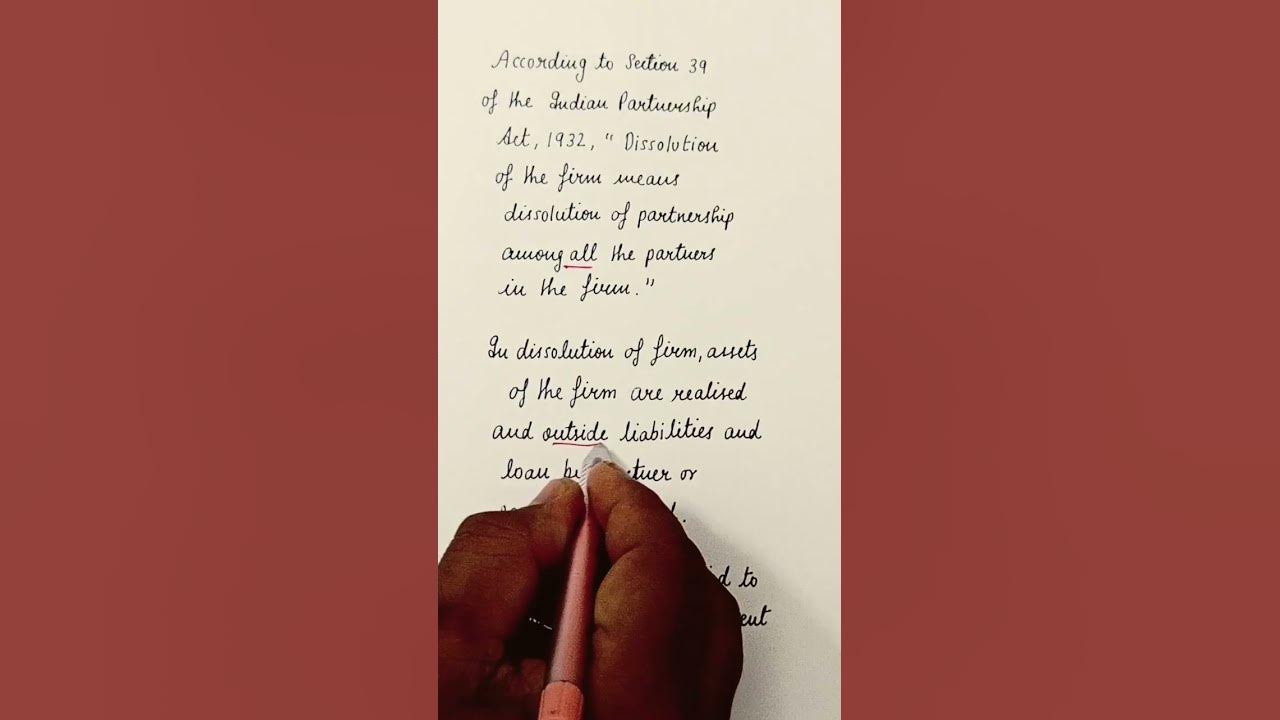 According to Section 39
of the Indian Partnership
Act, 1932, " Dissolution
of the firm means
dissolution of partnership
among all the partners
in the firm."
In dissolution of firm, assets
of the firm are realised
and outside liabilities and
loan or
to